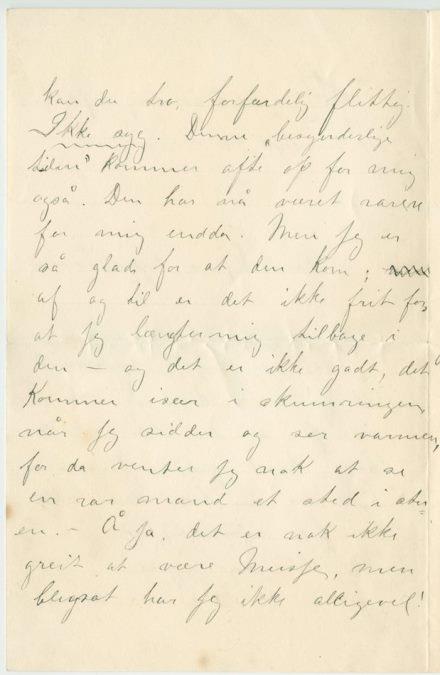 kan du tro, forfærdelig flittig.
Ikke syg. Denne „besynderlige
tiden" kommer ofte op for mig
også. Den har nå været rarere
for mig endda. Men jeg er
så glad for at den kom;
af og til er det ikke frit for,
at jeg længter mig tilbage i
den – og det er ikke godt, det
kommer især i skumringen,
når jeg sidder og ser varmen,
for da venter jeg nok at se
en rar mand et sted i stu-
en. – Å ja, det er nok ikke
greit at være menneske, men
har jeg ikke alligevel!